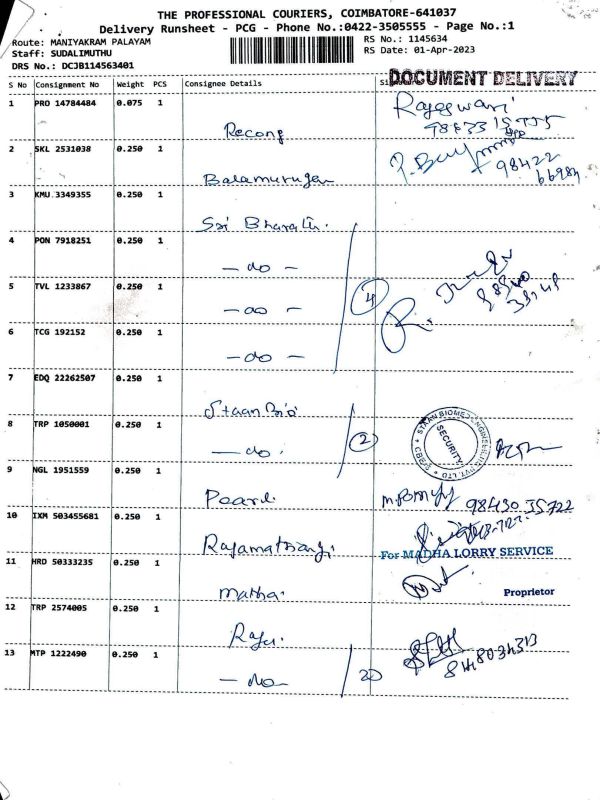 THE PROFESSIONAL COURIERS, COIMBATORE-641037
Delivery Runsheet - PCG - Phone No.:0422-3505555 - Page No.:1
Route: MANIYAKRAM PALAYAM
RS No.: 1145634
Staff: SUDALIMUTHU
RS Date: 01-Apr-2023
DRS No.: DCJB114563401
DOCUMENT DELIVERY
S No Consignment No Weight PCS Consignee Details
1 PRO 14784484 0.075 1
Rajeswari
2 SKL 2531038 0.250 1
Balamurugan
98422
66984
3 KMU 3349355 0.250 1
Sri Bharathi
4 PON 7918251 0.250 1
- do -
5 TVL 1233867 0.250 1
- do -
4
6 TCG 192152 0.250 1
- do -
7 EDQ 22262507 0.250 1
Staan Bio
8 TRP 1050001 0.250 1
- do.
2
STAAN BIOMED ENGINEERING PVT. LTD
SECURITY
9 NGL 1951559 0.250 1
Pearl
98430 35722
10 IXM 503455681 0.250 1
For MADHA LORRY SERVICE
11 HRD 50333235 0.250 1
Matha.
Proprietor
12 TRP 2574005 0.250 1
Raju.
13 MTP 1222490 0.250 1
- do -